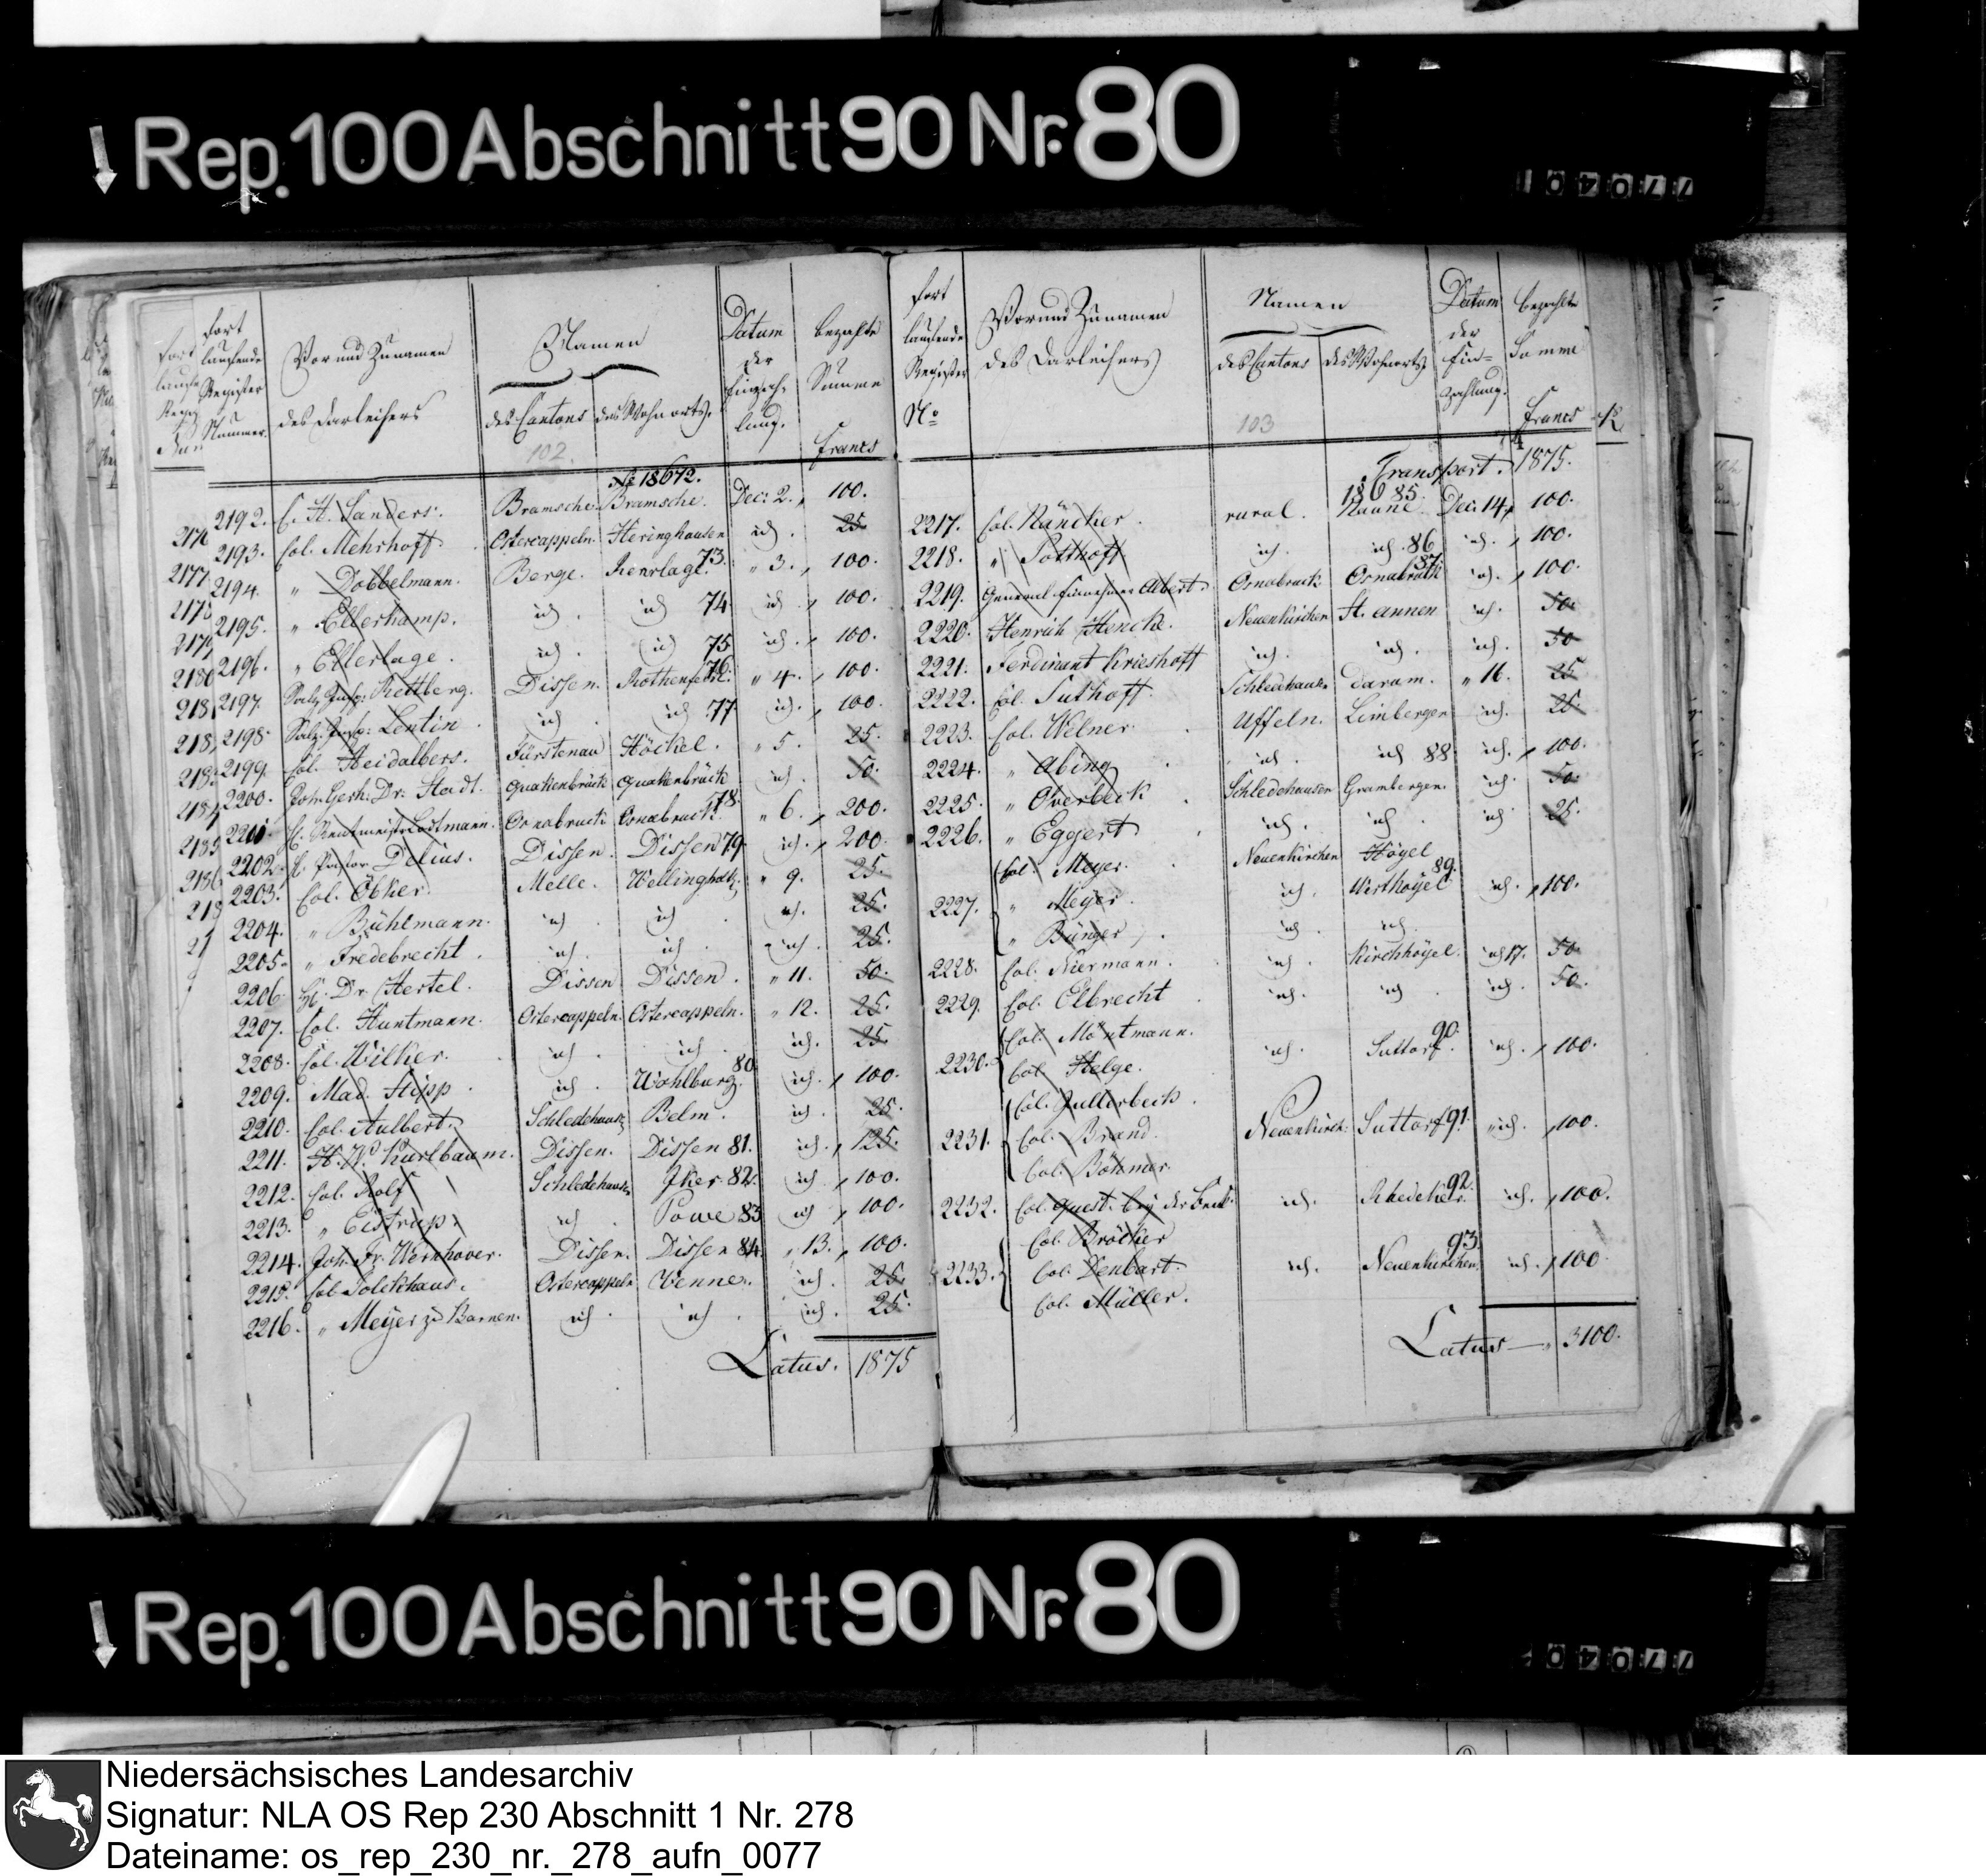 Rep. 100 Abschnitt 90 Nr. 80
770401
fort laufende Register Nummer.
Vor und Zunamen des Darleihers
Namen
des Cantons
des Wohnorts.
Datum der Einzahlung.
bezahlte Summe
francs
102.
No 18672.
2192. C. H. Sanders. Bramsche Bramsche. Dec: 2. 100.
2193. Col. Mehrhoff. Ostercappeln. Heringhausen id. 25
2194. " Dobbelmann. Berge. Renslage. 73. " 3. 100.
2195. " Ellerkamp. id. id 74 id 100.
2196. " Ellerlage. id. id 75 id. 100.
2197. Salz Insp. Rettberg. Dissen. Rothenfelde. 76. " 4. 100.
2198. Salz. Insp: Lentin. id id 77 id. 100.
2199. Col. Heidalbers. Fürstenau Höckel. " 5. 25.
2200. Joh. Gerh. Dr. Stadt. Quakenbrück Quakenbrück id. 50.
2201. H. Rentmeister Lodtmann. Osnabruck Osnabruck. 78. " 6. 200.
2202. H. Pastor Delius. Dissen. Dissen 79 id. 200.
2203. Col. Öbker. Melle. Wellingholtz. " 9. 25.
2204. " Bühlmann. id id id. 25.
2205. " Fredebrecht. id. id. id. 25.
2206. H: Dr. Hertel. Dissen Dissen. " 11. 50.
2207. Col. Huntmann. Ostercappeln. Ostercappeln. " 12. 25.
2208. Col. Wilker. id. id. id. 25.
2209. Mad. Stipp id. Wahlburg. 80 id. 100.
2210. Col. Aulbert. Schledehausen Belm. id. 25.
2211. H. W. Kurlbaum. Dissen. Dissen 81. id. 125.
2212. Col. Rolf Schledehausen Jker 82. id 100.
2213. " Eistrup. id. Powe 83 id 100.
2214. Joh. Fr. Wernhover. Dissen. Dissen 84. " 13. 100.
2215. Col. Polckhaus. Ostercappeln Venne. id. 25.
2216. " Meyer zu Barnen. id. id. id. 25.
Latus. 1875
fort laufende Register No
Vor und Zunamen des Darleihers
Namen
des Cantons
des Wohnorts.
Datum der Einzahlung.
bezahlte Somme
francs
103
Transport. 1875.
2217. Col. Nüncker. rural. Nanne. 18685. Dec. 14. 100.
2218. " Potthoff id. id. 86 id. 100.
2219. General Einnehmer Albert. Osnabruck Osnabruck 87 id. 100.
2220. Henrich Hencke. Neuenkirchen St. annen id. 50.
2221. Ferdinant Krieshoff id. id. id. 50
2222. Col. Suthoff. Schledehausen Daram. " 16. 25
2223. Col. Welner. Uffeln. Limbergen id. 25.
2224. " Abing id. id 88 id. 100.
2225. " Overbeck Schledehausen Grambergen. id. 50.
2226. " Eggert id. id. id 25.
Col. Meyer. Neuenkirchen Höyel
2227. " Meyer. id. Westhoyel 89. id. 100.
" Bünger, id. id.
2228. Col. Niermann. id. Kirchhoyel. id 17. 50.
2229. Col. Elbrecht id. id. id. 50.
Col. Möntmann.
2230. Col. Helge. id. Suttorf. 90. id. 100.
Col. Jullerbeck.
2231. Col. Brand. Neuenkirch: Suttorf 91. id. 100.
Col. Böhmer.
2232. Col. Quest. bey der Beck. id. Rhedeker. 92. id. 100.
Col. Bröcker
2233. Col. Denbart. id. Neuenkirchen. 93. id. 100
Col. Müller.
Latus — 3100.
Rep. 100 Abschnitt 90 Nr. 80
770401
Niedersächsisches Landesarchiv
Signatur: NLA OS Rep 230 Abschnitt 1 Nr. 278
Dateiname: os_rep_230_nr._278_aufn_0077